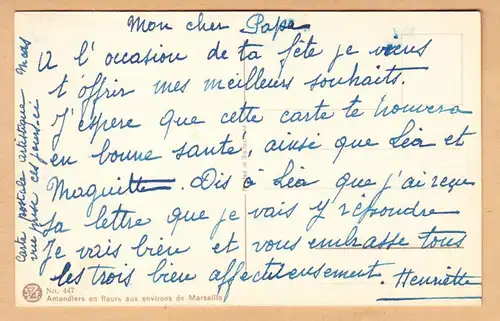 Mon cher Papa
A l'occasion de ta fête je viens
t'offrir mes meilleurs souhaits.
J'espere que cette carte te trouvera
en bonne santé, ainsi que Léa et
Maguitte. Dis à Léa que j'ai reçu
sa lettre que je vais y répondre
Je vais bien et vous embrasse tous
les trois bien affectueusement. Henriette
Carte postale artistique Mars
vue prise ces jours ici
No. 447
Amandiers en fleurs aux environs de Marseille